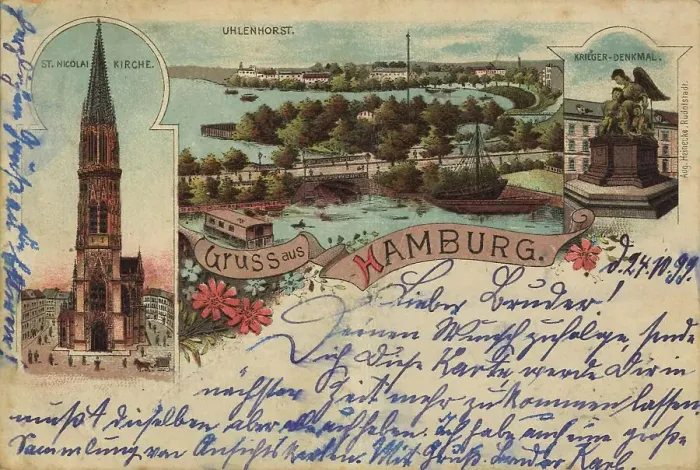 UHLENHORST.
ST. NICOLAI KIRCHE.
KRIEGER-DENKMAL.
Aug. Heinecke, Rudolstadt.
Gruss aus HAMBURG.
d. 24.10.99.
Lieber Bruder!
Deinen Wunsch zufolge, sende
Dich Diese Karte werde Dir in
nächster Zeit mehr zukommen lassen
mußt dieselben aber alle aufheben. Ich habe auch eine große
Sammlung von Ansichtskarten. Mit Gruß Bruder Karl